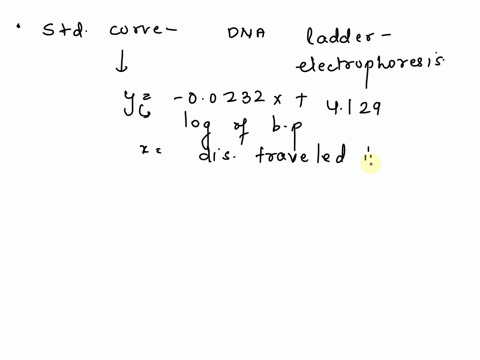 • Std. curve - DNA ladder -
electrophoresis
↓
y = -0.0232x + 4.129
↳ log of b.p
x = dis. traveled